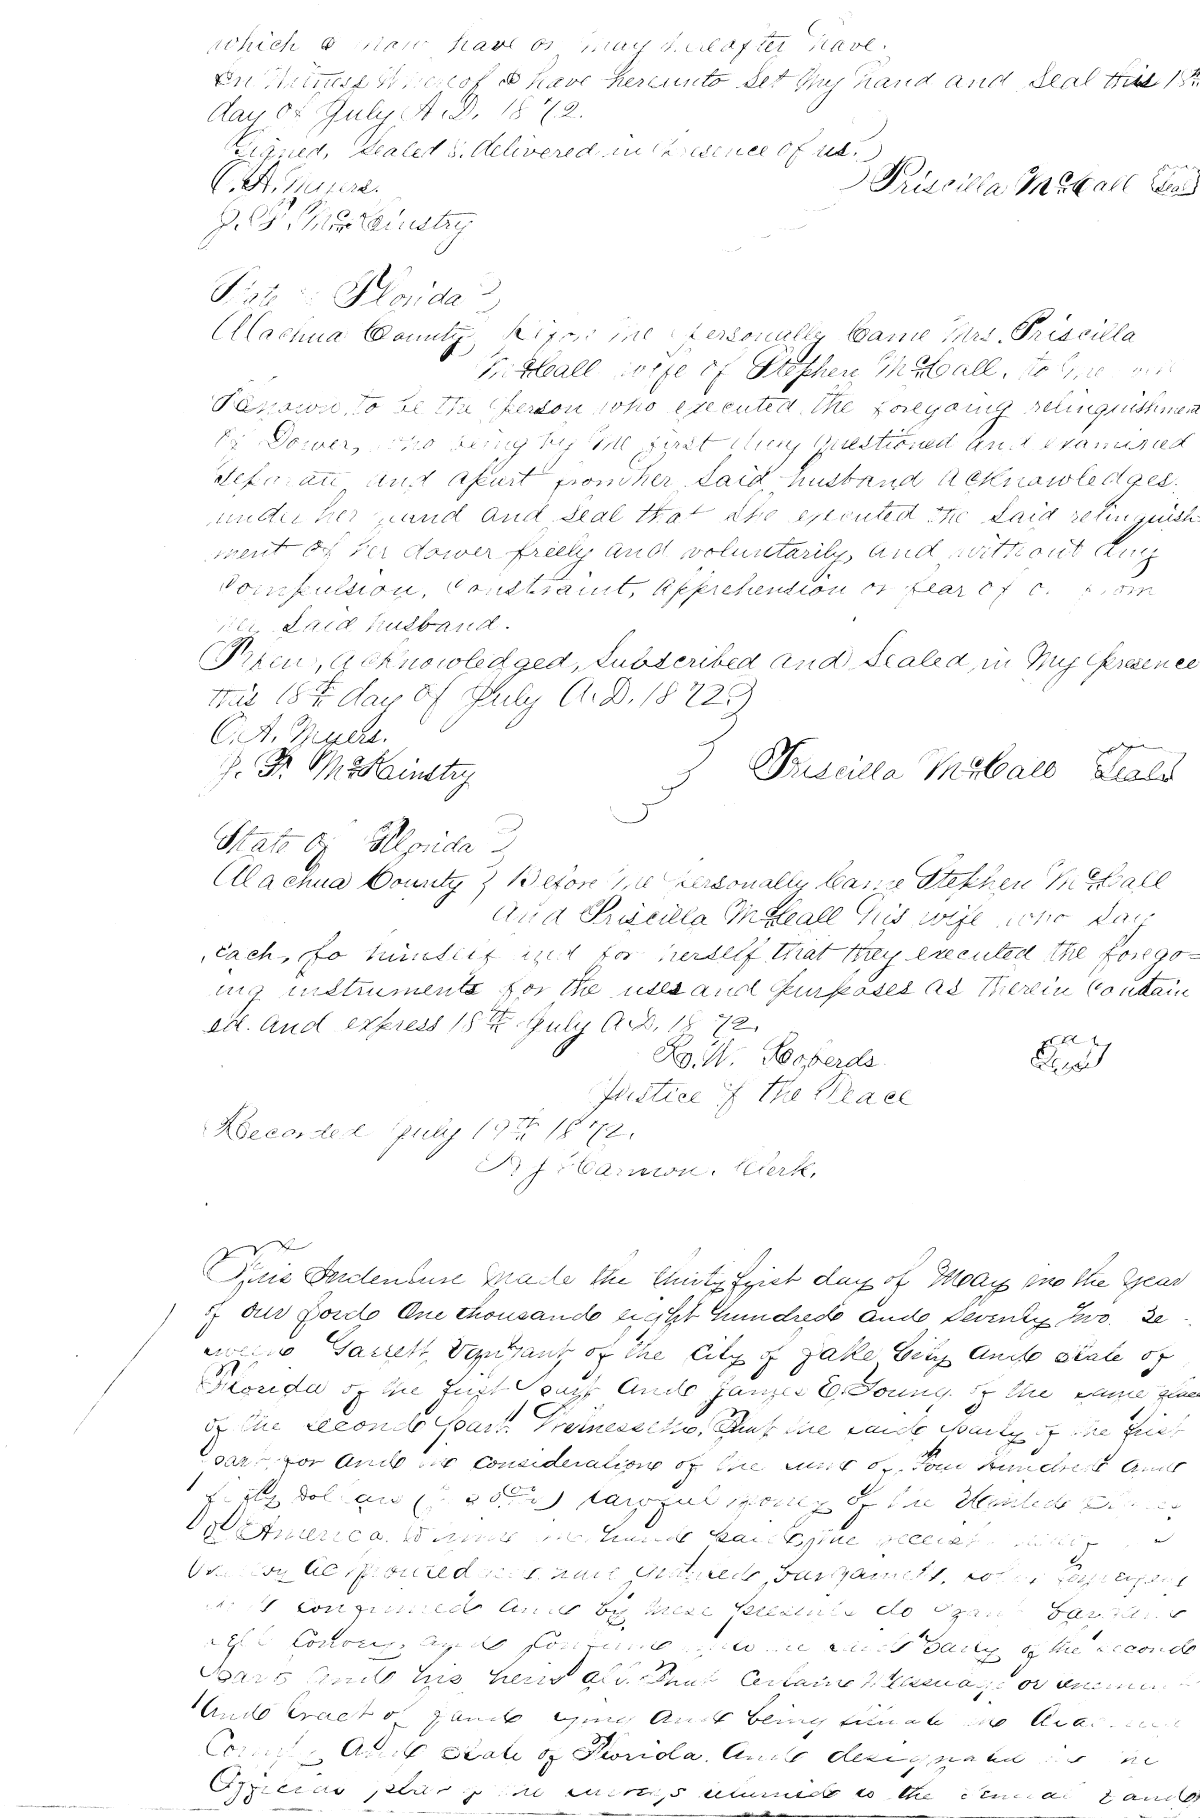 which I now have or may hereafter have.
In Witness Whereof I have hereunto Set My hand and Seal this 18th
day of July A.D. 1872.
Signed, Sealed & delivered in Presence of us.
C. A. Myers.
Priscilla McCall Seal
J. F. McKinstry
State of Florida
Alachua County Before me personally Came Mrs. Priscilla
McCall wife of Stephen McCall, to me well
Known to be the person who executed the foregoing relinquishment
of Dower, who being by me first duly questioned and examined
separate and apart from her said husband acknowledges
under her hand and seal that she executed the said relinquish-
ment of her dower freely and voluntarily, and without any
Compulsion, Constraint, Apprehension or fear of or from
her said husband.
Taken, Acknowledged, Subscribed and Sealed, in My presence
this 18th day of July A.D. 1872
C. A. Myers.
J. F. McKinstry
Priscilla McCall Seal
State of Florida
Alachua County Before me personally Came Stephen McCall
and Priscilla McCall his wife who say
each, fo himself and for herself that they executed the forego=
ing instruments for the uses and purposes as therein Contain
ed. and express 18th July A.D. 1872.
R. W. Roberds
Seal
Justice of the Peace
Recorded July 19th 1872.
Harmon. Clerk.
This Indenture made the thirty first day of May in the year
of our Lord One thousand eight hundred and seventy two. Be-
tween Garrett VanZant of the City of Lake City and State of
Florida of the first part And James E. Young of the same place
of the second part. Witnesseth, That the said party of the first
part for and in consideration of the sum of Four hundred and
fifty Dollars lawful money of the United States
of America. to him in hand paid, the receipt
whereof
confirmed and by these presents do grant bargain
sell Convey, and Confirm unto the said party of the second
part and his heirs all That Certain Messuage or tenement
And tract of Land lying and being situate in Alachua
County And State of Florida. And designated in the
Official plat of the surveys returned to the General Land